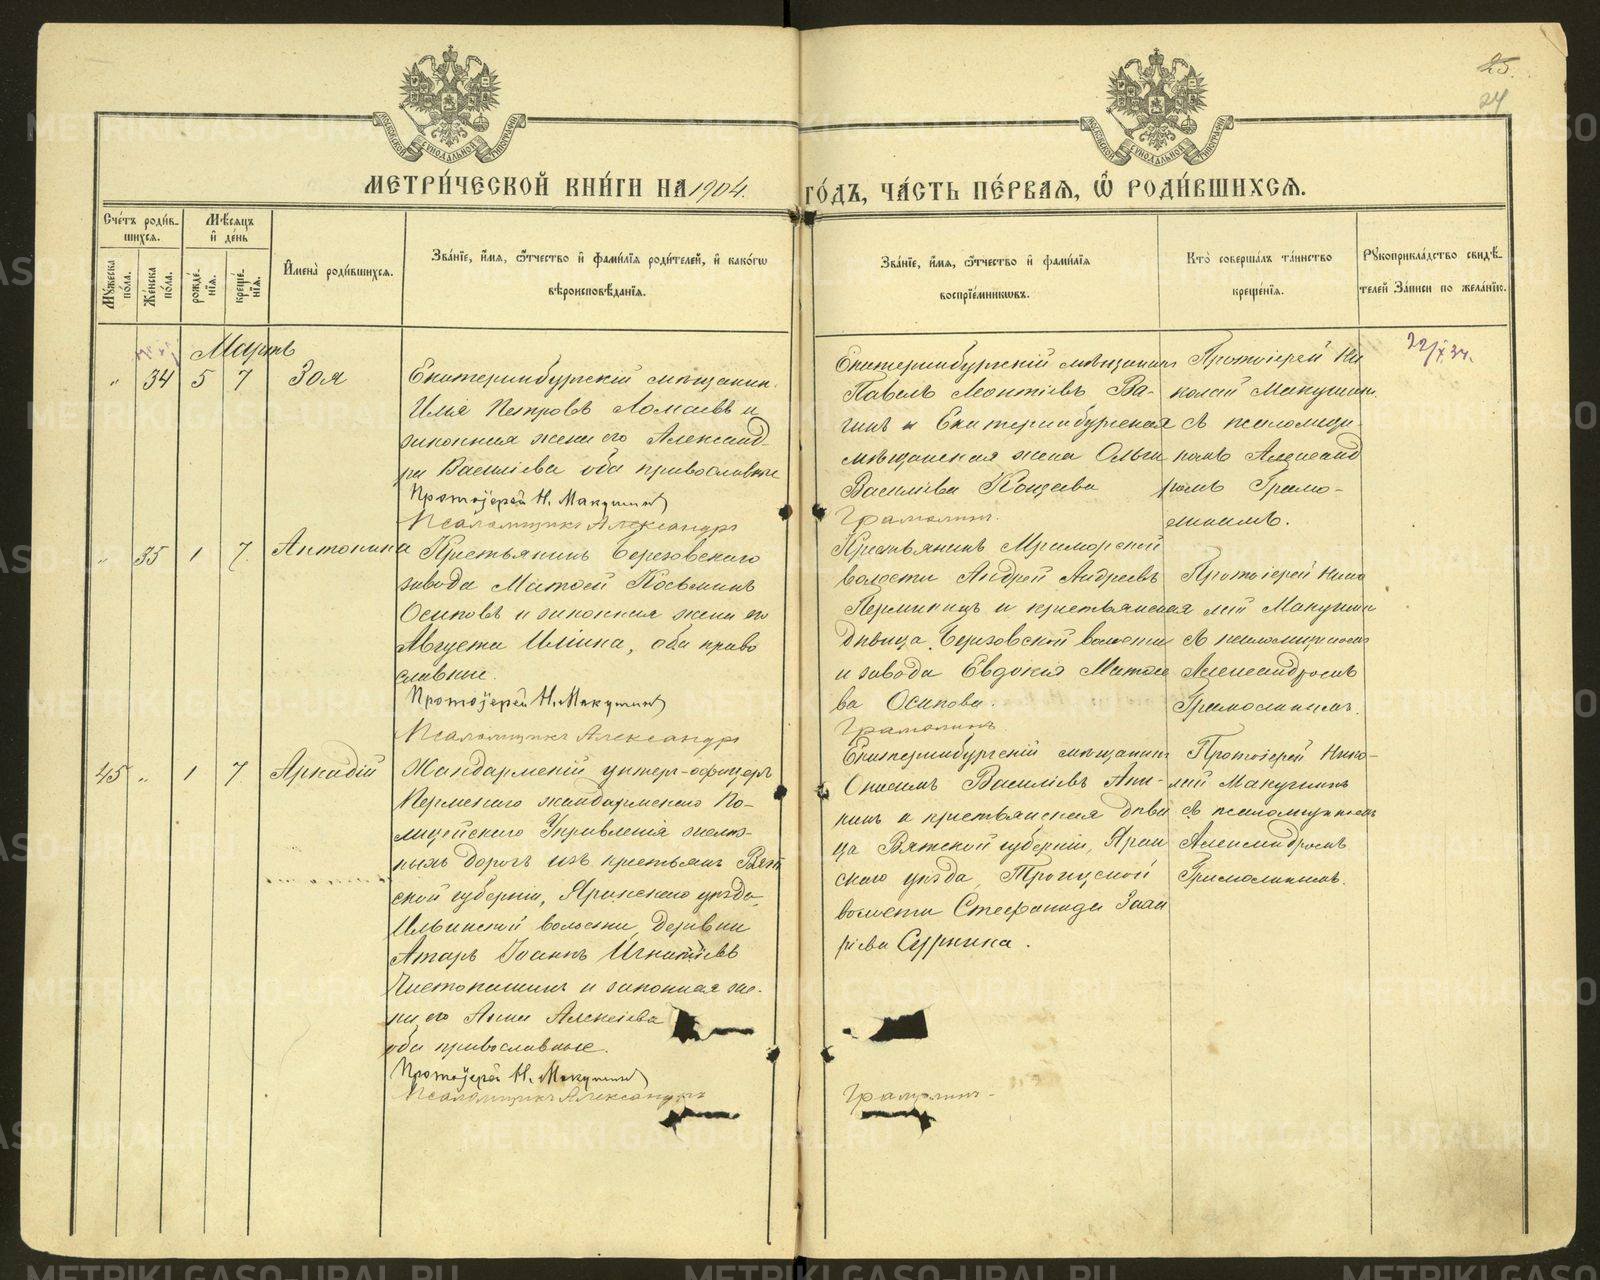 25.
24
МЕТРИ́ЧЕСКОЙ КНИ́ГИ НА 1904. ГО́ДЪ, ЧА́СТЬ ПЕ́РВАЯ, Ѡ҆ РОДИ́ВШИХСЯ.
Сче́тъ роди́в-
шихся.
Му́жеска по́ла.
Же́нска по́ла.
Мѣ́сяцъ и҆ де́нь
рожде́нїя.
креще́нїя.
И҆мена̀ роди́вшихся.
Зва́нїе, и҆́мя, ѻ҆́тчество и҆ фами́лїя роди́телей, и҆ како́гѡ
вѣроисповѣ́данїя.
Зва́нїе, и҆́мя, ѻ҆́тчество и҆ фами́лїя
воспрїе́мникѡвъ.
Кто̀ соверша́лъ та́инство
креще́нїя.
Рꙋкоприкла́дство свидѣ́-
телей За́писи по жела́нїю.
Мартъ
" 34 5 7 Зоя
Екатеринбургскій мѣщанин
Илія Петровъ Ломаевъ и
законная жена его Александ-
ра Василіева оба православные
Протоіерей Н. Макушинъ
Псаломщикъ Александръ
Грамолин.
Екатеринбургскій мѣщанин
Павелъ Леонтіевъ Ва-
гинъ и Екатеринбургская
мѣщанская жена Ольга
Василіева
Протоіерей Ни
колай Макушин
съ псаломщи-
комъ Александ
ромъ Грамо-
линымъ.
22/X 34.
" 35 1 7. Антонина
Крестьянинъ Березовскаго
завода Матѳей Косьминъ
Осиповъ и законная жена его
Августа Ильина, оба право
славные.
Протоіерей Н. Макушинъ
Псаломщикъ Александръ
Грамолинъ
Крестьянинъ Мраморской
волости Андрей Андреевъ
Пермикинъ и крестьянская
дѣвица Березовской волости
и завода Евдокія Матѳее
ва Осипова.
Протоіерей Нико
лай Макушин
съ псаломщикомъ
Александромъ
Грамолинымъ.
45 " 1 7 Аркадій
Жандармскій унтер-офицеръ
Пермскаго жандармскаго По-
лицейскаго Управленія желѣз-
ныхъ дорогъ изъ крестьянъ Вят
ской губерніи, Яранскаго уѣзда,
Ильинской волости, деревни
Атаръ Іоаннъ Игнатіевъ
Чистопашинъ и законная же-
на его Анна Алексіева
оба православные.
Протоіерей Н. Макушинъ
Псаломщикъ Александръ
Грамолин-
Екатеринбургскій мѣщанин
Онисимъ Василіевъ Ани-
кинъ и крестьянская дѣви
ца Вятской губерніи, Яран
скаго уѣзда, Троицкой
волости Стефанида Заха
ріева
Протоіерей Нико-
лай Макушинъ
съ псаломщикомъ
Александромъ
Грамолинымъ.
METRIKI.GASO-URAL.RU